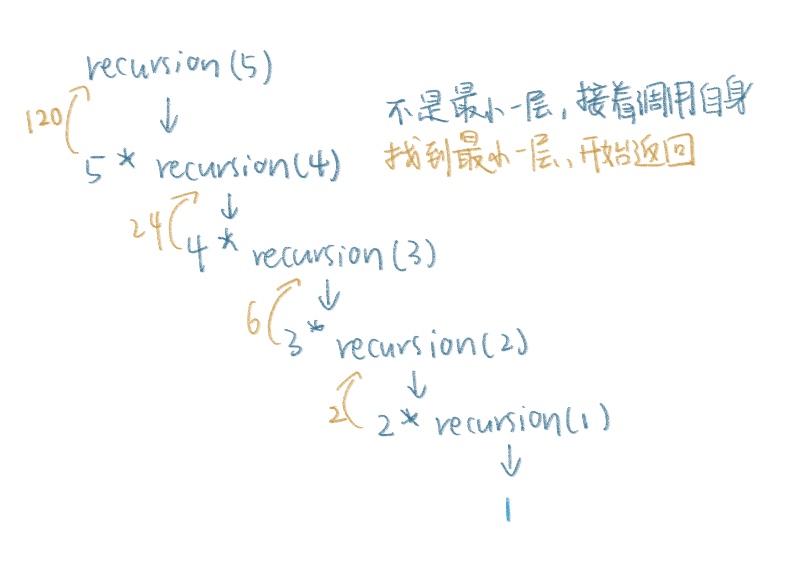 recursion(5)
不是最小一层，接着调用自身
120
5 * recursion(4)
找到最小一层，开始返回
24
4 * recursion(3)
6
3 * recursion(2)
2
2 * recursion(1)
1